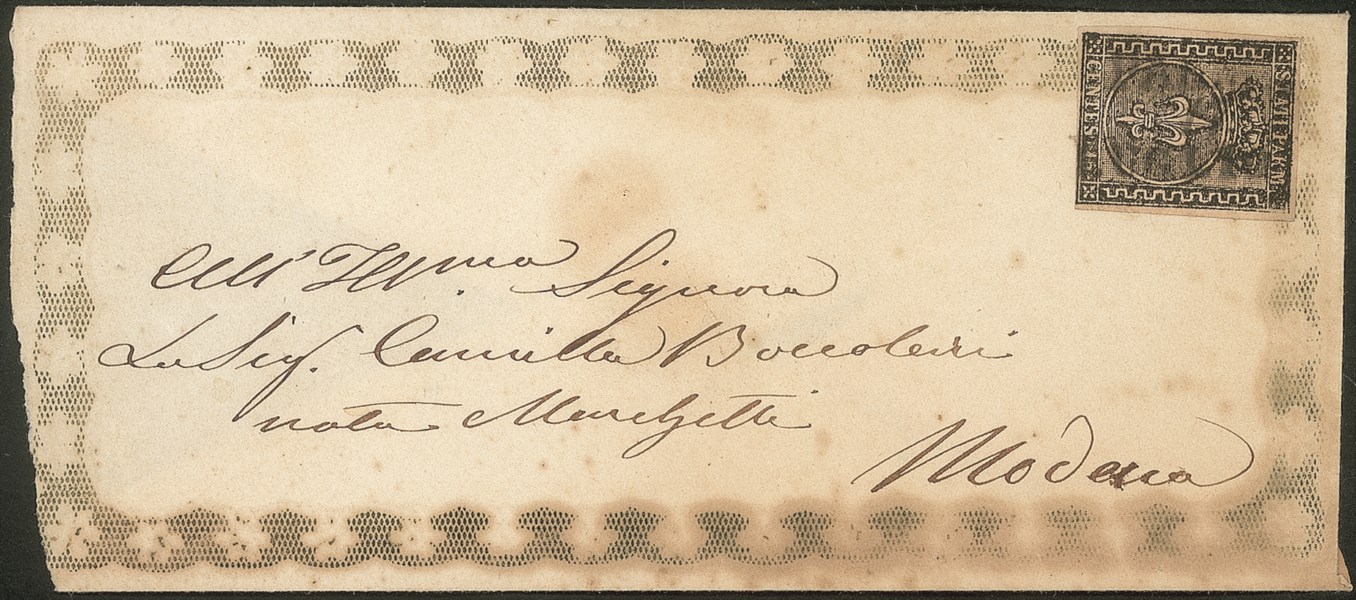 All' Ill.ma Signora
La Sig. Camilla Boccolari
nata Marchetti
Modena
STATI PARM.
CENTES.